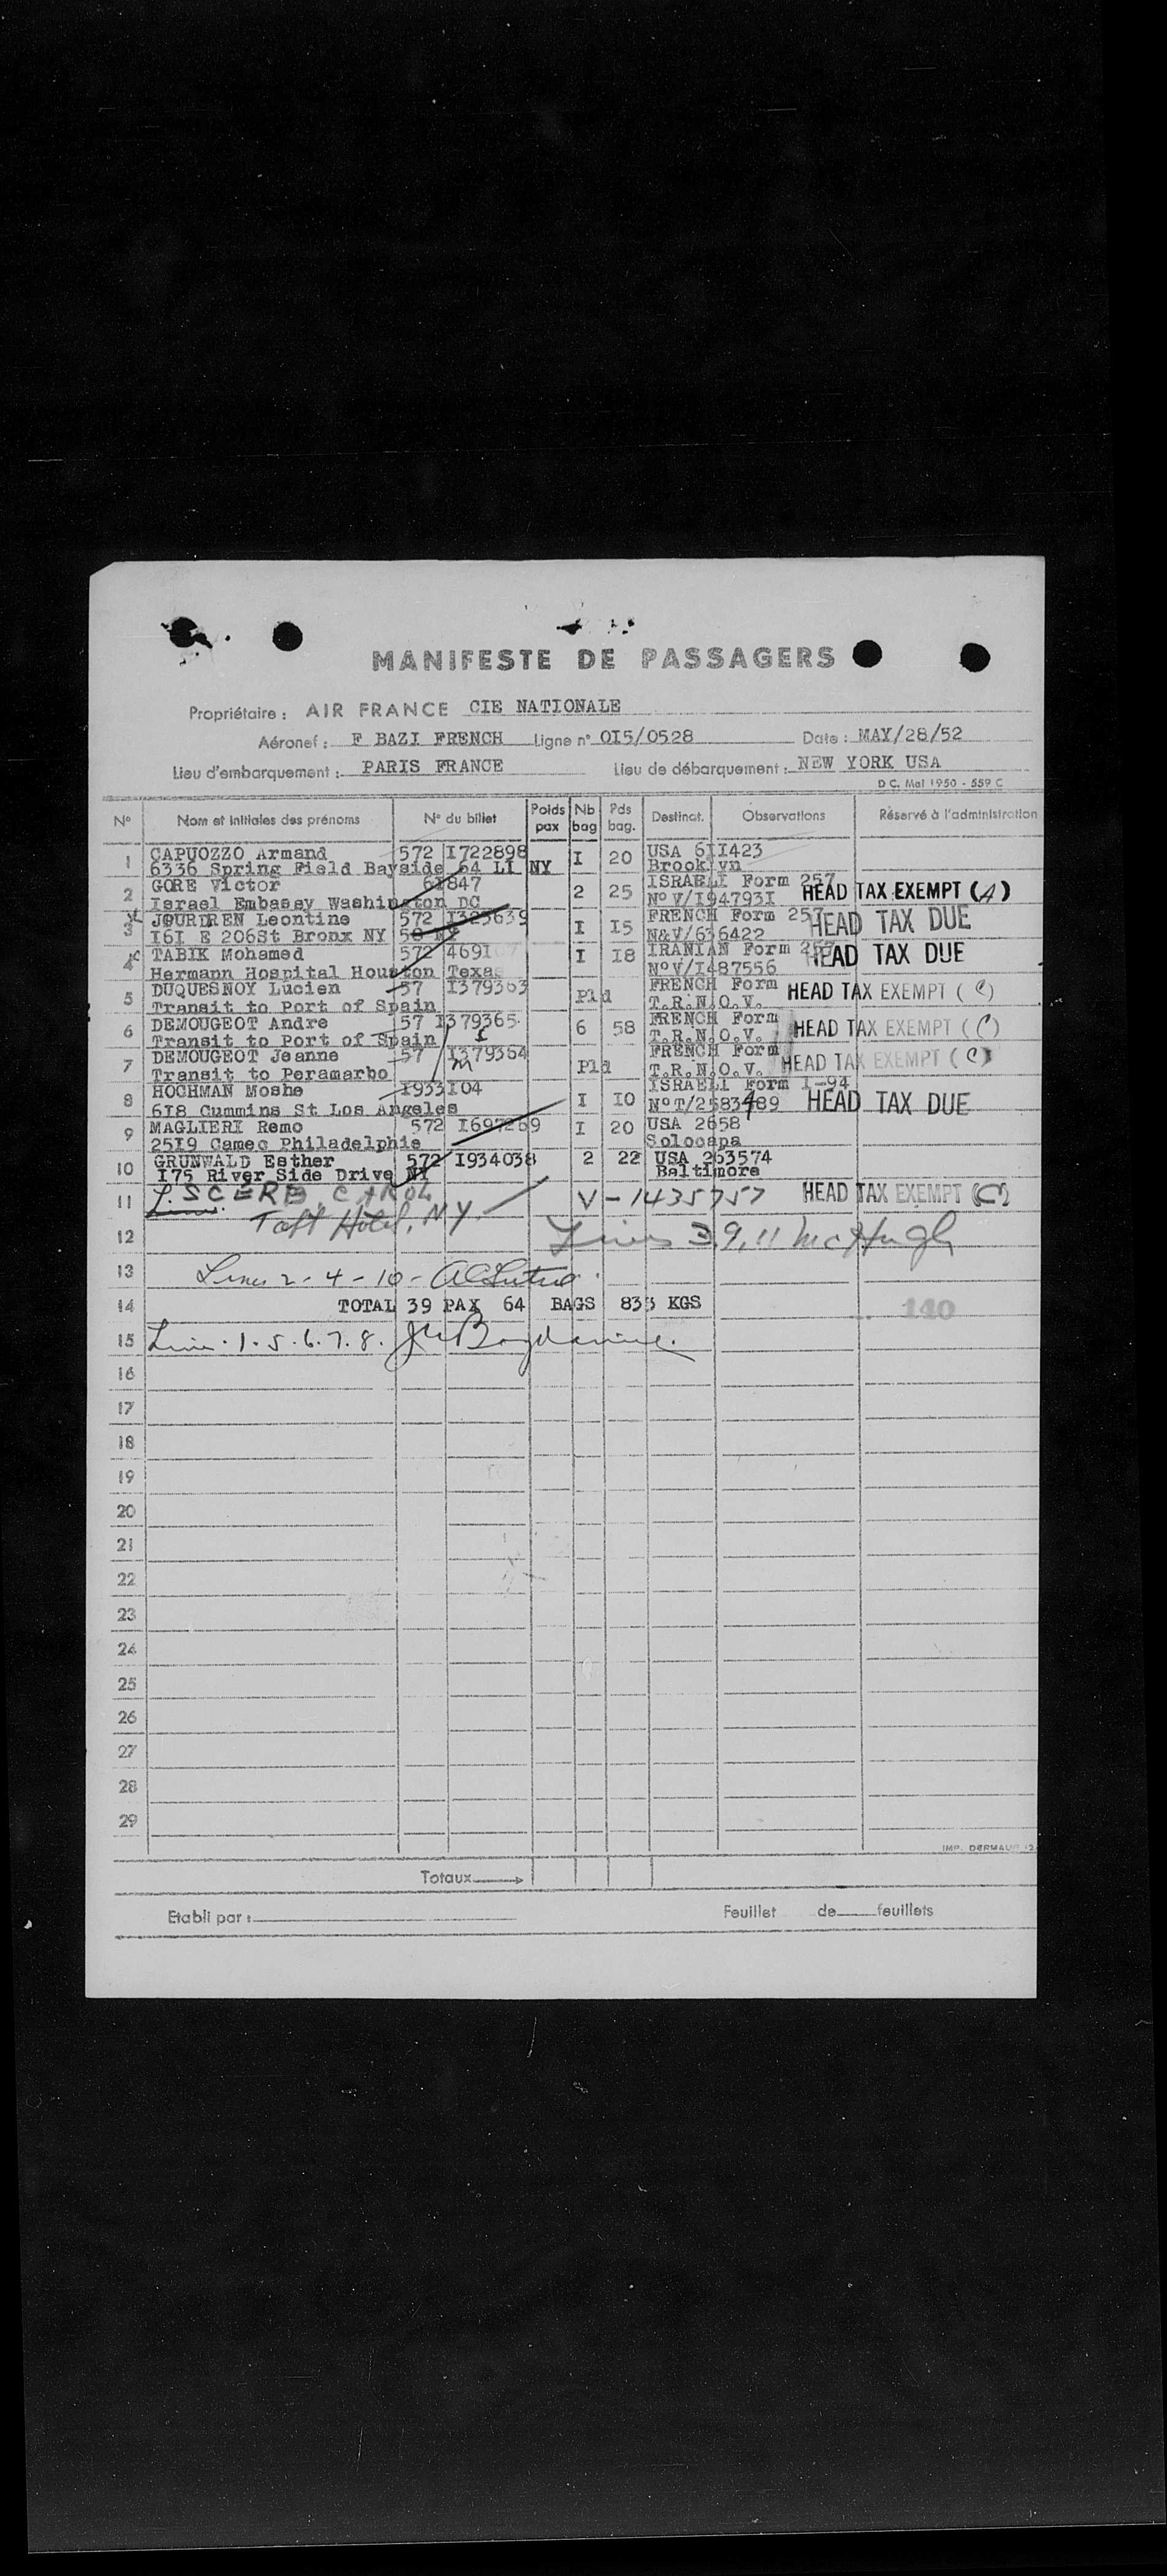 MANIFESTE DE PASSAGERS
Propriétaire : AIR FRANCE CIE NATIONALE
Aéronef : F BAZI FRENCH Ligne n° OI5/0528 Date : MAY/28/52
Lieu d'embarquement : PARIS FRANCE Lieu de débarquement : NEW YORK USA
D C. Mat 1950 - 559 C
N° Nom et initiales des prénoms N° du billet Poids pax Nb bag Pds bag. Destinat. Observations Réservé à l'administration
1 CAPUOZZO Armand 572 I722898 I 20 USA 6II423
6336 Spring Field Bayside 64 LI NY Brooklyn
2 GORE Victor 61847 2 25 ISRAELI Form 257 HEAD TAX EXEMPT (A)
Israel Embassy Washington DC N° V/I94793I
3 Leontine 572 I323639 I I5 FRENCH Form 257 HEAD TAX DUE
I6I E 206St Bronx NY 58 NY N&V/636422
4 TABIK Mohamed 572 4691 I I8 IRANIAN Form 257 HEAD TAX DUE
Hermann Hospital Houston Texas N° V/I487556
5 DUQUESNOY Lucien 57 I379363 Pld FRENCH Form HEAD TAX EXEMPT (C)
Transit to Port of Spain T.R.N.O.V.
6 DEMOUGEOT Andre 57 I379365 6 58 FRENCH Form HEAD TAX EXEMPT (C)
Transit to Port of Spain I T.R.N.O.V.
7 DEMOUGEOT Jeanne 57 I379364 Pld FRENCH Form HEAD TAX EXEMPT (C)
Transit to Peramarbo m T.R.N.O.V.
8 HOCHMAN Moshe I933I04 I IO ISRAELI Form I-94 HEAD TAX DUE
6I8 Cummins St Los Angeles N° T/2583489
9 MAGLIERI Remo 572 I697269 I 20 USA 2658
25I9 Cameo Philadelphie Solocapa
10 GRUNWALD Esther 572 I934038 2 22 USA 263574
I75 River Side Drive NY Baltimore
11 SCERB CAROL V-1435757 HEAD TAX EXEMPT (C)
Taft Hotel, N.Y.
12 Lines 3,9,11 McHugh
13 Lines 2-4-10-
14 TOTAL 39 PAX 64 BAGS 833 KGS 140
15 Line 1.5.6.7.8.
16
17
18
19
20
21
22
23
24
25
26
27
28
29
IMP. DERMAUX
Totaux
Etabli par : Feuillet de feuillets